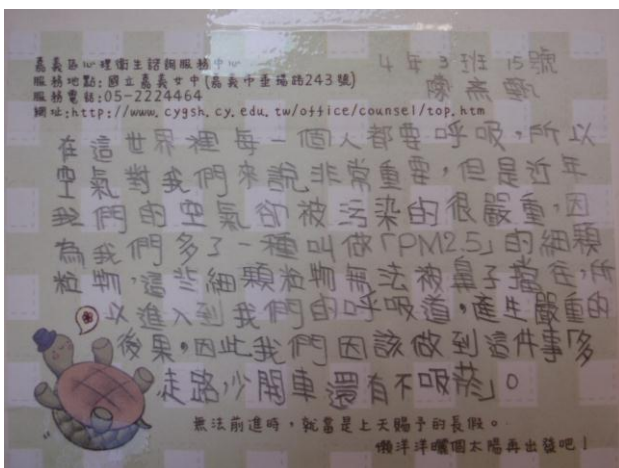 嘉義區心理衛生諮詢服務中心
4年3班 15號
服務地點:國立嘉義女中(嘉義市垂楊路243號)
陳
服務電話:05-2224464
網址:http://www.cygsh.cy.edu.tw/office/counsel/top.htm
在這世界裡每一個人都要呼吸,所以
空氣對我們來說非常重要,但是近年
我們的空氣卻被污染的很嚴重,因
為我們多了一種叫做「PM2.5」的細顆
粒物,這些細顆粒物無法被鼻子擋住,所
以進入到我們的呼吸道,產生嚴重的
後果,因此我們因該做到這件事「多
走路少開車還有不吸菸」。
無法前進時,就當是上天賜予的長假。
懶洋洋曬個太陽再出發吧!